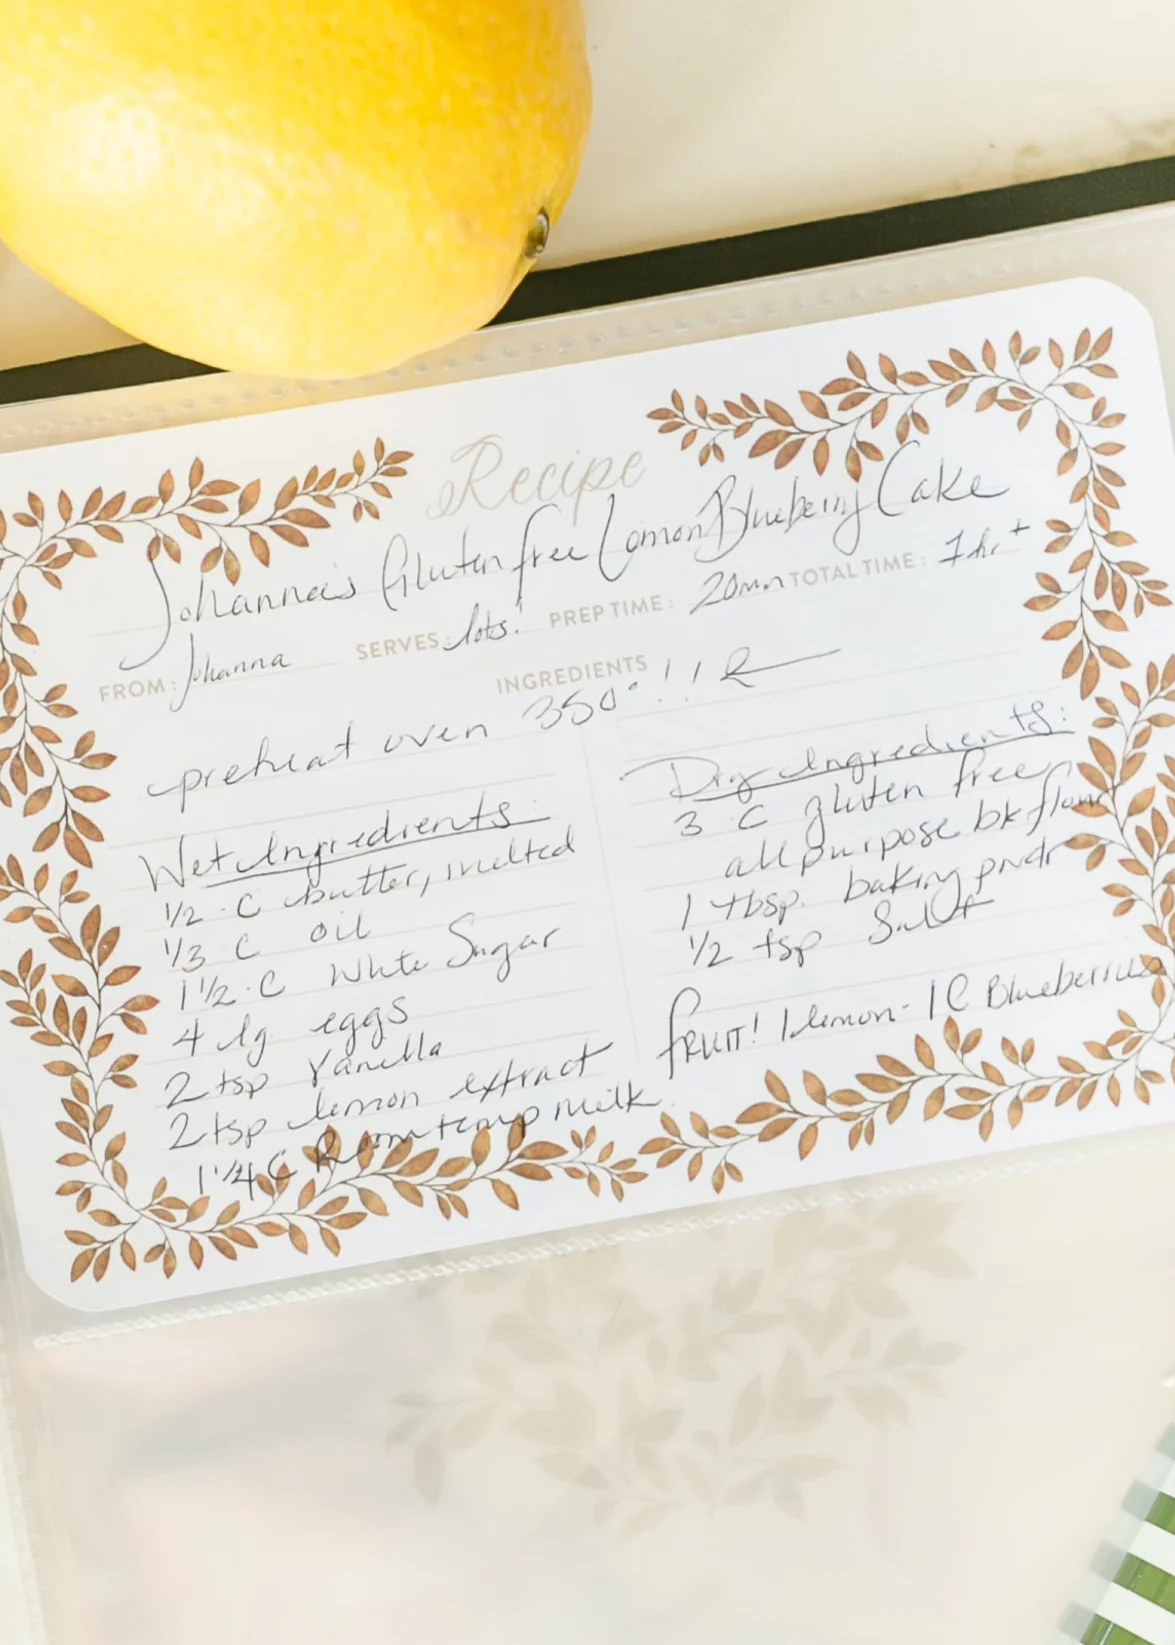 Recipe
Johanna's Gluten free Lemon Blueberry Cake
FROM: Johanna SERVES: lots! PREP TIME: 20mn TOTAL TIME: 1 hr +
INGREDIENTS
preheat oven 350° !!
Wet Ingredients:
1/2 C butter, melted
1/3 C oil
1 1/2 C White Sugar
4 lg eggs
2 tsp Vanilla
2 tsp lemon extract
1 1/4 C Room temp milk
Dry Ingredients:
3 C gluten free
all purpose bk flour
1 tbsp. baking pwdr
1/2 tsp Salt
FRUIT! 1 lemon - 1 C Blueberries